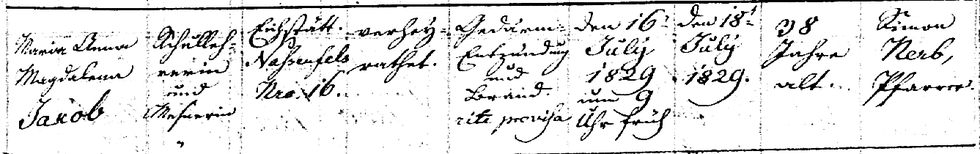 Maria Anna
Magdalena
Jakob
Schulleh-
rerin
und
Meßnerin
Eichstätt
Nassenfels
Nro. 16.
verhey-
rathet.
Gedärm-
Entzündung
und
Brand.
rite provisa
den 16t
July
1829
um 9
Uhr früh
den 18t
July
1829.
38
Jahre
alt.
Simon
Nerb,
Pfarrer.